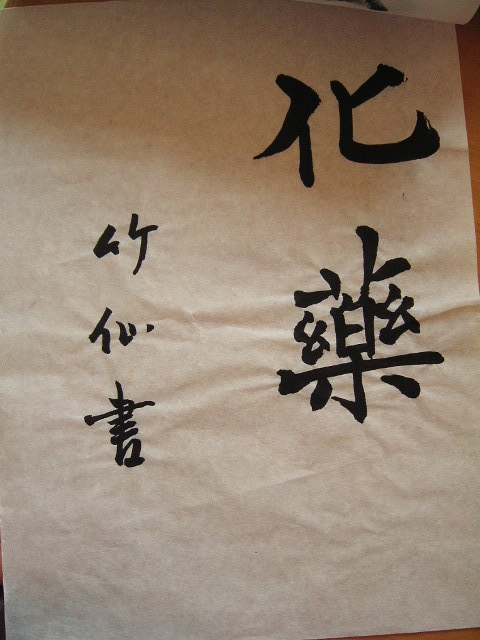 化藥
竹仙書